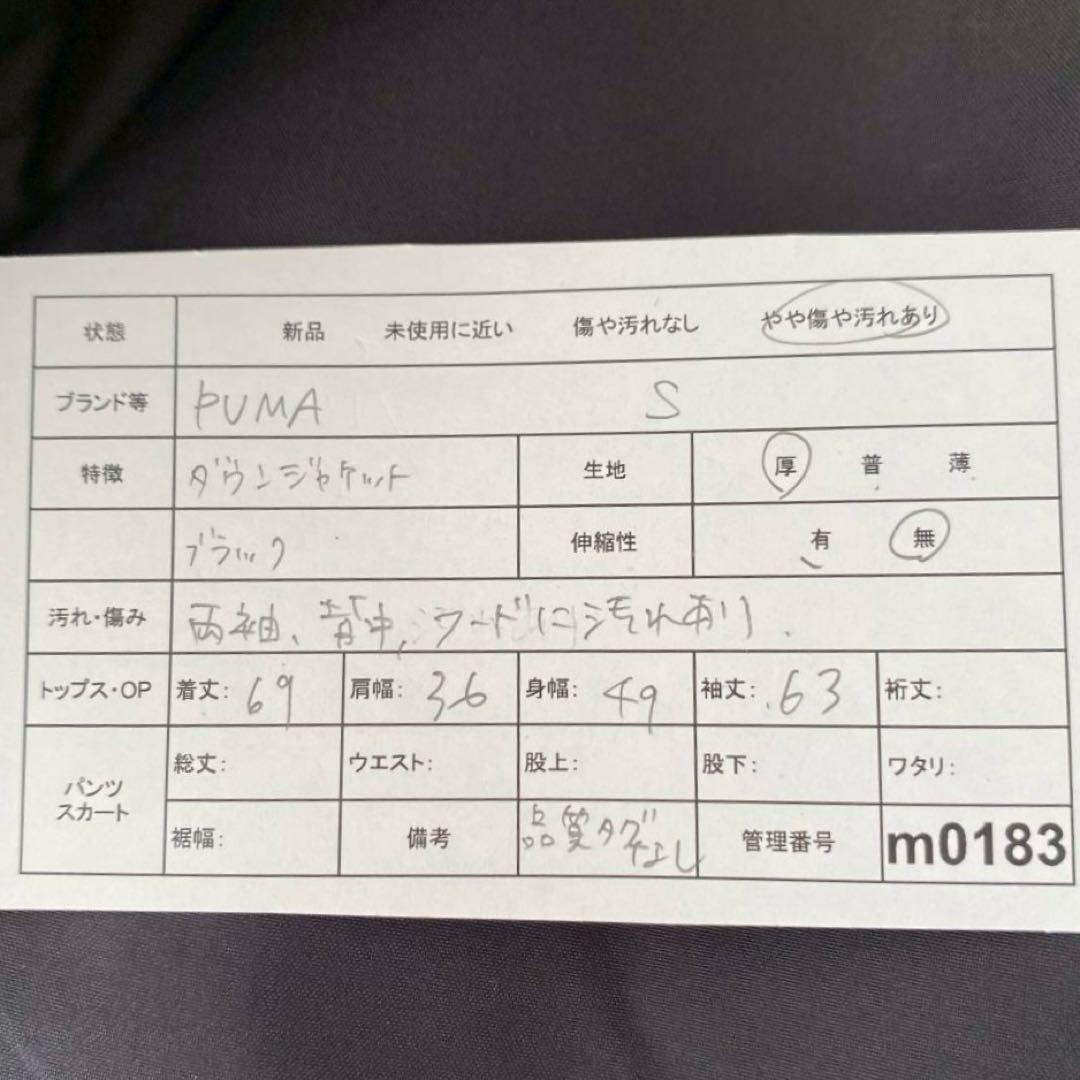 状態 新品 未使用に近い 傷や汚れなし やや傷や汚れあり
ブランド等 PUMA S
特徴 ダウンジャケット 生地 厚 普 薄
ブラック 伸縮性 有 無
汚れ・傷み 両袖、背中、フードに汚れあり.
トップス・OP 着丈: 69 肩幅: 36 身幅: 49 袖丈: 63 裄丈:
パンツ
スカート
総丈: ウエスト: 股上: 股下: ワタリ:
裾幅: 備考 品質タグなし 管理番号 m0183